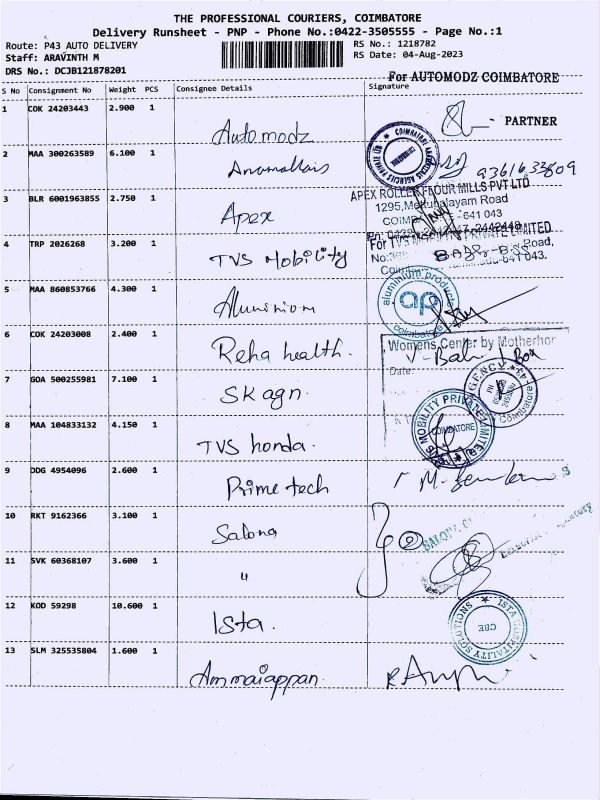 THE PROFESSIONAL COURIERS, COIMBATORE
Delivery Runsheet - PNP - Phone No.:0422-3505555 - Page No.:1
Route: P43 AUTO DELIVERY
RS No.: 1218782
Staff: ARAVINTH M
RS Date: 04-Aug-2023
DRS No.: DCJB121878201
For AUTOMODZ COIMBATORE
S No Consignment No Weight PCS Consignee Details Signature
1 COK 24203443 2.900 1 Automodz PARTNER
2 MAA 300263589 6.100 1 Anamallais 9361633809
3 BLR 6001963855 2.750 1 Apex
APEX ROLLER FLOUR MILLS PVT LTD
1295, Mettupalayam Road
- 641 043
4 TRP 2026268 3.200 1 TVS Mobility
For TVS MOBILITY PRIVATE LIMITED
Road,
641 043.
5 MAA 860853766 4.300 1 Aluminium
aluminium products
ap
coimbatore
6 COK 24203008 2.400 1 Reha health.
Womens Center by Motherhood
Date:
7 GOA 500255981 7.100 1 SK agn.
AGENCY
Coimbatore
8 MAA 104833132 4.150 1 TVS honda.
MOBILITY PRIVATE LIMITED
COIMBATORE
9 DDG 4954096 2.600 1 Prime tech
10 RKT 9162366 3.100 1 Salona
11 SVK 60368107 3.600 1 "
12 KOD 59298 10.600 1 Ista.
ISTA HOSPITALITY SOLUTIONS
CBE
13 SLM 325535804 1.600 1 Ammaiappan